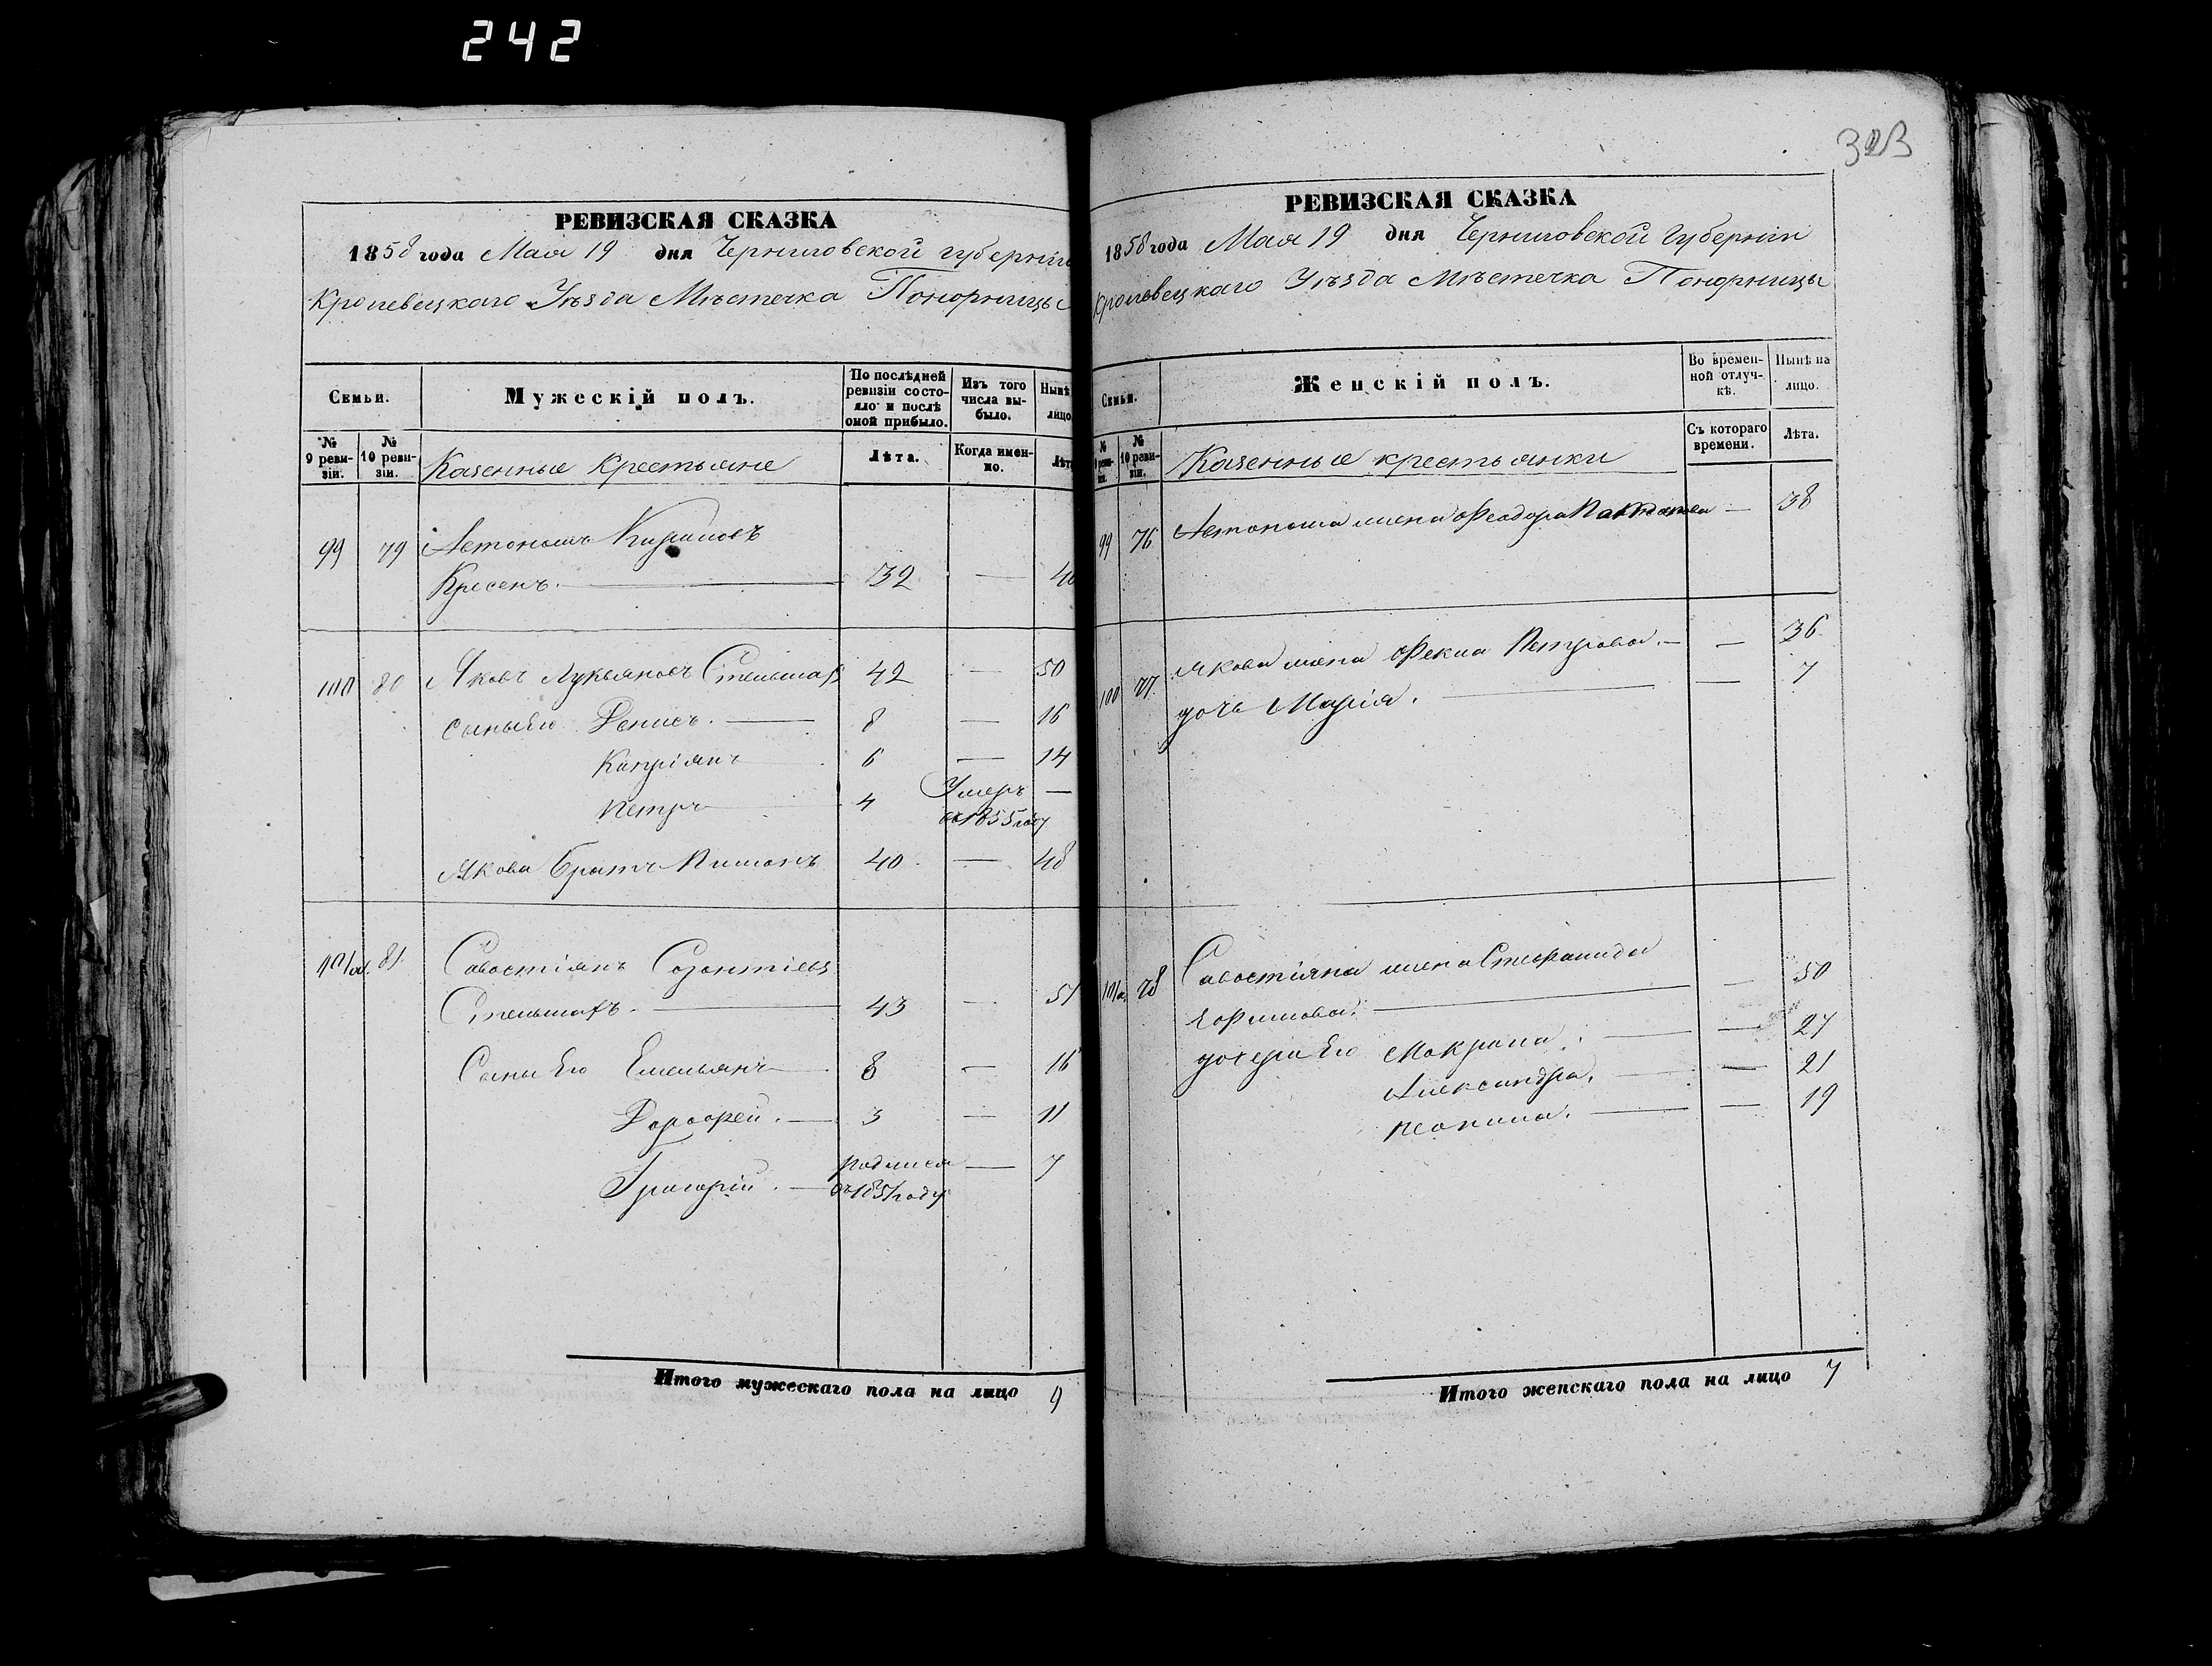 242
РЕВИЗСКАЯ СКАЗКА
1858 года Мая 19 дня Черниговской губерніи
Кролевецкаго Уѣзда Мѣстечка Понорницы
Семьи.
Мужескій полъ.
По послѣдней ревизіи состояло и послѣ оной прибыло.
Изъ того числа выбыло.
Нынѣ лицо
№ 9 ревизіи.
№ 10 ревизіи.
Казенные Крестьяне
Лѣта.
Когда именно.
Лѣт
99 79 Автономъ
Кресенъ. 32 — 40
100 80 Яковъ Лукьяновъ Стельмах 42 — 50
сыны Его Денисъ. 8 — 16
Кипріянъ 6 — 14
Петръ 4 Умеръ —
въ 1855 году
Якова братъ Пименъ 40 — 48
81 Савостіянъ Созонтіевъ
Стельмахъ. 43 — 51
Сыны Его Емельянъ 8 — 16
Дорофей. 3 — 11
Григорій. родился — 7
въ 1851 году
Итого мужескаго пола на лицо 9
323
РЕВИЗСКАЯ СКАЗКА
1858 года Мая 19 дня Черниговской Губерніи
Кролевецкаго Уѣзда Мѣстечка Понорницы
Семьи.
Женскій полъ.
Во временной отлучкѣ.
Нынѣ на лицо.
№ 9 ревизіи.
№ 10 ревизіи.
Казенные крестьянки
Съ котораго времени.
Лѣта.
99 76 Автонома жена Феодора — 38
100 77 Якова жена Фекла Петрова. — 36
дочь Марія. — 7
78 Савостіяна жена Стефанида
Ефимова. — 50
дочери Его Мокрина. — 27
Александра. — 21
— 19
Итого женскаго пола на лицо 7